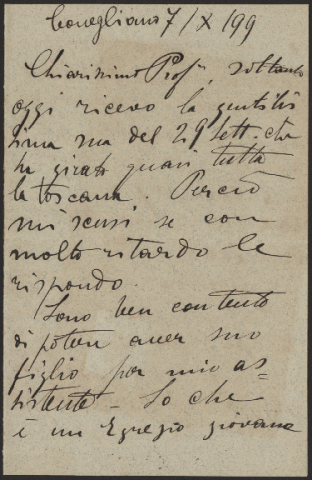 Conegliano 7/X 199
Chiarissimo Prof., soltanto
oggi ricevo la gentilis
sima sua del 29 Sett. che
ha girato quasi tutta
la Toscana. Perciò
mi scusi se con
molto ritardo le
rispondo.
Sono ben contento
di poter aver suo
figlio per mio as=
sistente - So che
è un Egregio giovane